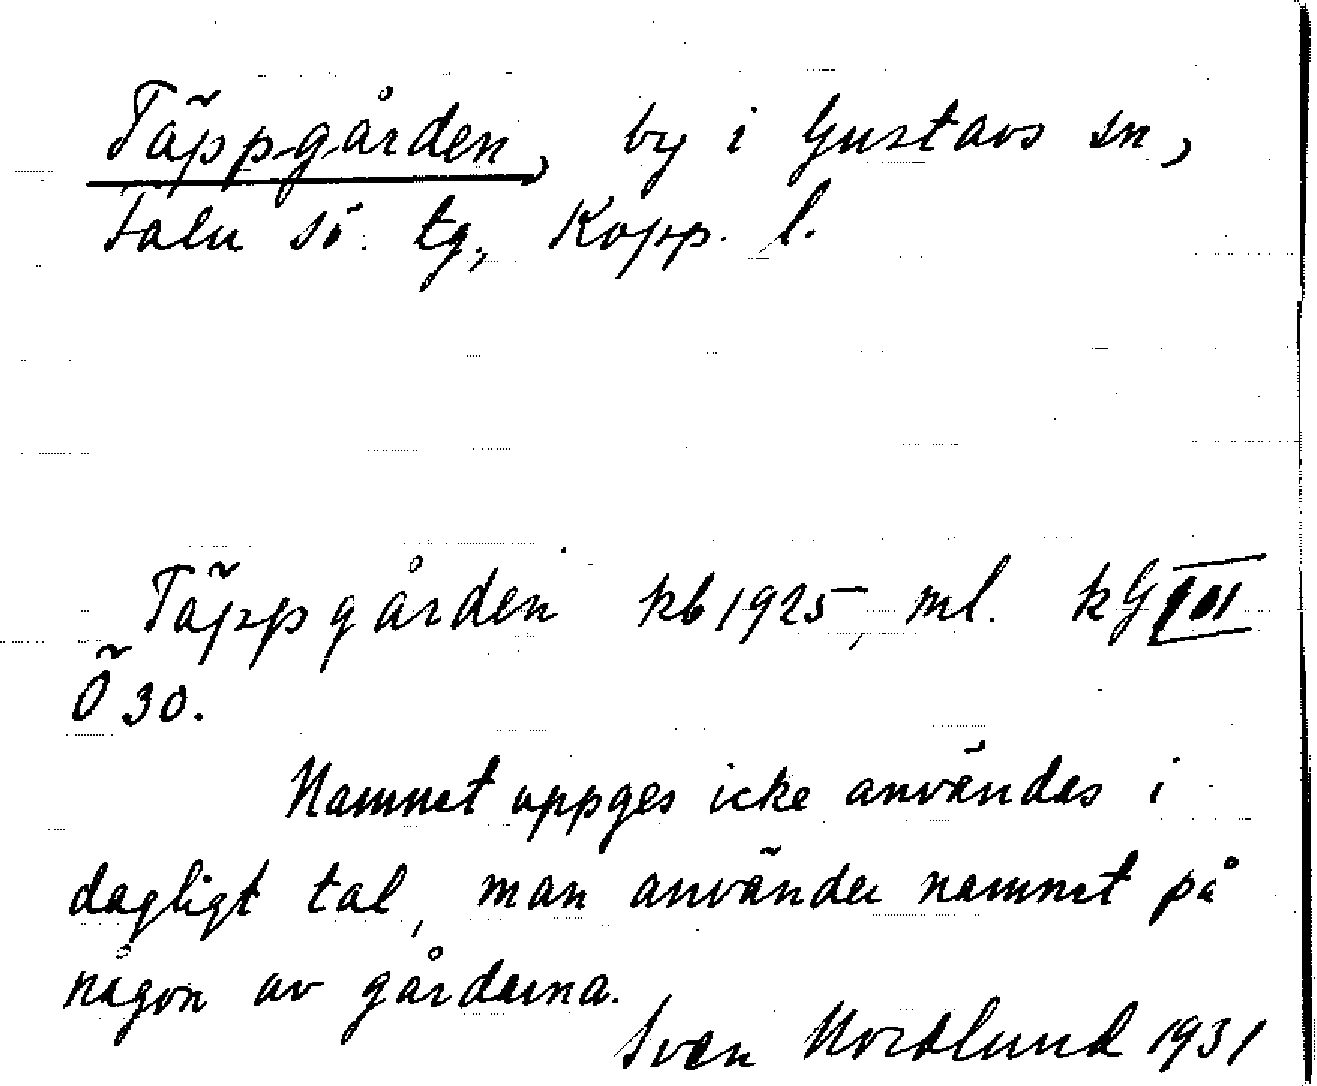 Täppgården, by i Gustavs sn,
Falu sö. tg., Kopp. l.
Täppgården kb 1925, ml. kG III
Ö 30.
Namnet uppges icke användas i
dagligt tal, man använder namnet på
någon av gårdarna.
Sven Nordlund 1931